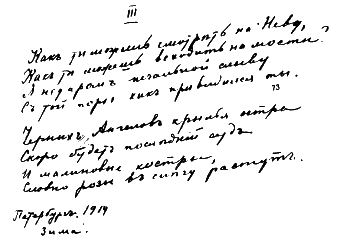 III
Какъ ты можешь смотрѣть на Неву,
Какъ ты можешь всходить на мосты?
Я недаромъ печальной слыву
Съ той поры, какъ привидился ты.
73
Черныхъ Ангеловъ крылья остры
Скоро будетъ последній судъ
И малиновые костры,
Словно розы въ снѣгу растутъ.
Петербургъ. 1914
Зима.